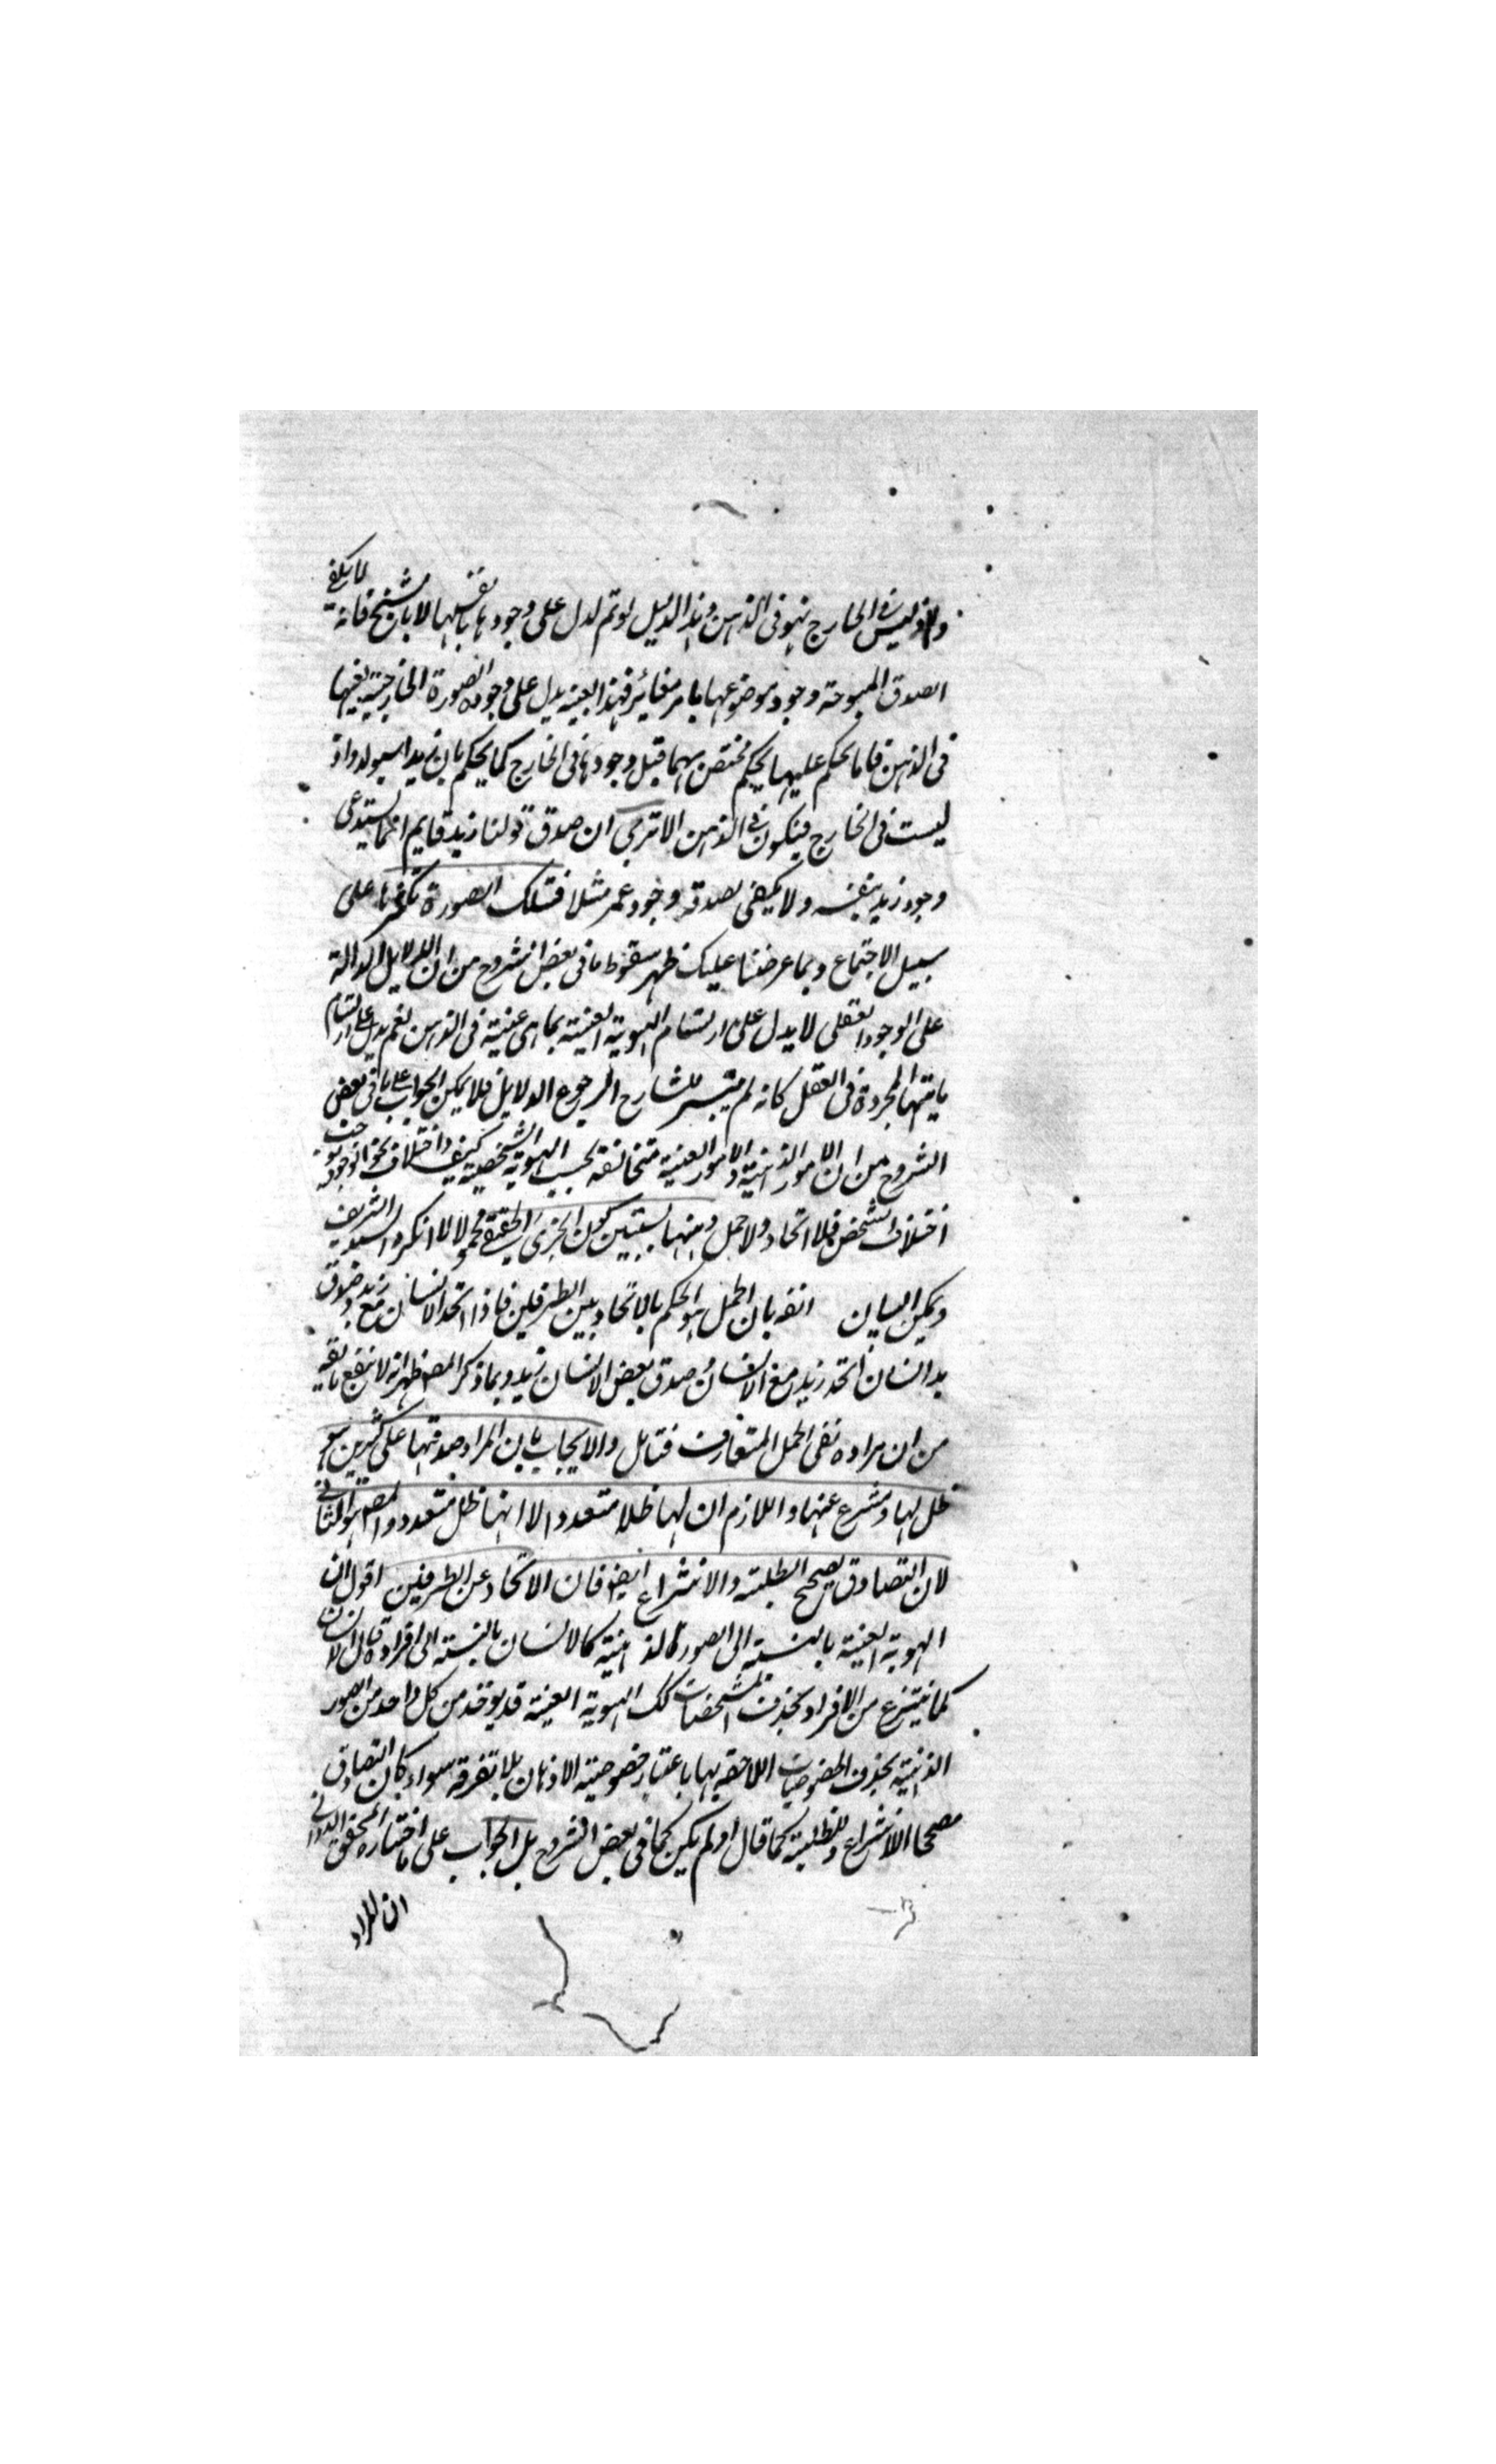 واذ ليس فى الخارج فهو فى الذهن وهذا الدليل لو تم لدل على وجودها بانفسها لا باشباحها فانه لا يكفى
لصدق الموجبة وجود موضوعها بامر مغائر فهذا بعينه يدل على وجود الصورة الخارجية بعينها
فى الذهن فانا نحكم عليها بحكم مختص بها قبل وجودها فى الخارج كما يحكم بان زيدا سيولد واذ
ليست فى الخارج فيكون فى الذهن الا ترى ان صدق قولنا زيد قايم انما يستدعى
وجود زيد بنفسه ولا يكفى لصدقه وجود عمر مثلا فتلك الصورة تكثرها على
سبيل الاجتماع وبما عرضنا عليك ظهر سقوط ما فى بعض الشروح من ان الدلايل الدالة
على الوجود العقلى لا يدل على ارتسام الهوية العينية بما هى عينية فى الذهن نعم يدل على ارتسام
ماهيتها المجردة فى العقل كانه لم يتيسر للشارح الرجوع الدلايل فلا يمكن الجواب على ما فى بعض
الشروح من ان الامور الذهنية والامور العينية متخالفة بحسب الهوية الشخصية كيف واختلاف نحو الوجود يوجب
اختلاف الشخص فلا اتحاد ولا حمل ومنها يستبين كون الجزئى الحقيقى محمولا لا انكره السيد الشريف
ويمكن البيان انفه بان الحمل هو الحكم بالاتحاد بين الطرفين فاذا اتحد الانسان مع زيد وصدق
زيد انسان اتحد زيد مع الانسان صدق بعض الانسان زيد وبما ذكر المص ظهر انه لا ينفع ما قيه
من ان مراده نفى الحمل المتعارف فتامل والايجاب بان المراد صدقها على كثيرين هو
ظل لها ومنتزع عنها واللازم ان لها ظلا متعددا لا انها ظل متعدد والمص هو الثانى
لان التصادق يصحح الظلية والانتزاع ايضو فان الاتحاد عن الطرفين اقول ان
الهوية العينية بالنسبة الى الصور الذهنية كالانسان بالنسبة الى افراده قال الانسان
كما ينتزع من الافراد بحذف المشخصات كك الهوية العينية قد يوخذ من كل واحد من الصور
الذهنية بحذف الخصوصيات اللاحقة بها باعتبار خصوصية الاذهان بلا تفرقة سواء كان التصادق
مصححا الانتزاع والظلية كما قال او لم يكن كما فى بعض الشروح بل الجواب على ما اختاره المحقق الدوانى
ان المراد